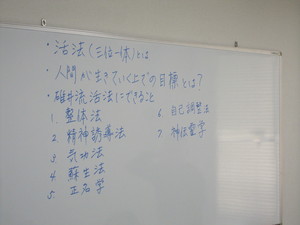 ・活法(三位一体)とは
・人間が生きていく上での目標とは?
・碓井流活法にできること
1. 整体法
2. 精神誘導法
3. 気功法
4. 蘇生法
5. 正名学
6. 自己調整法
7. 神伝霊学